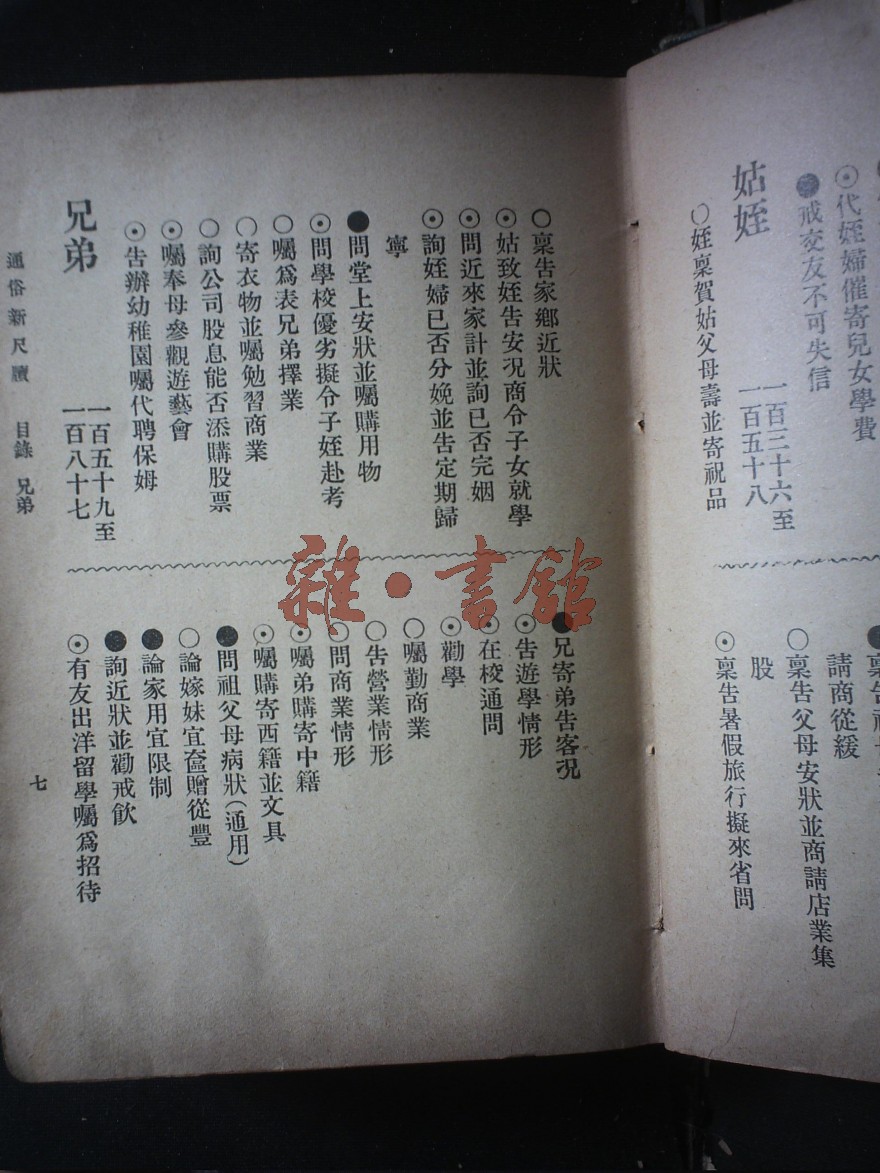 ⊙代姪婦催寄兒女學費
●戒交友不可失信
姑姪
一百三十六至
一百五十八
○姪稟賀姑父母壽並寄祝品
請商從緩
○稟告父母安狀並商請店業集
股
⊙稟告暑假旅行擬來省問
○稟告家鄉近狀
⊙姑致姪告安況商令子女就學
⊙問近來家計並詢已否完姻
⊙詢姪婦已否分娩並告定期歸
寧
●問堂上安狀並囑購用物
⊙問學校優劣擬令子姪赴考
○囑爲表兄弟擇業
○寄衣物並囑勉習商業
○詢公司股息能否添購股票
⊙囑奉母參觀遊藝會
⊙告辦幼稚園囑代聘保姆
兄弟
一百五十九至
一百八十七
●兄寄弟告客況
⊙告遊學情形
⊙在校通問
⊙勸學
○囑勤商業
○告營業情形
⊙問商業情形
⊙囑弟購寄中籍
⊙囑購寄西籍並文具
●問祖父母病狀(通用)
○論嫁妹宜奩贈從豐
●論家用宜限制
●詢近狀並勸戒飲
⊙有友出洋留學囑爲招待
通俗新尺牘 目錄 兄弟
七
雜·書館